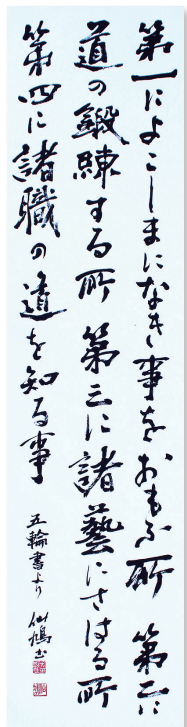 第一によこしまになき事をおもふ所 第二に
道の鍛練する所 第三に諸藝にさはる所
第四に諸職の道を知る事
五輪書より